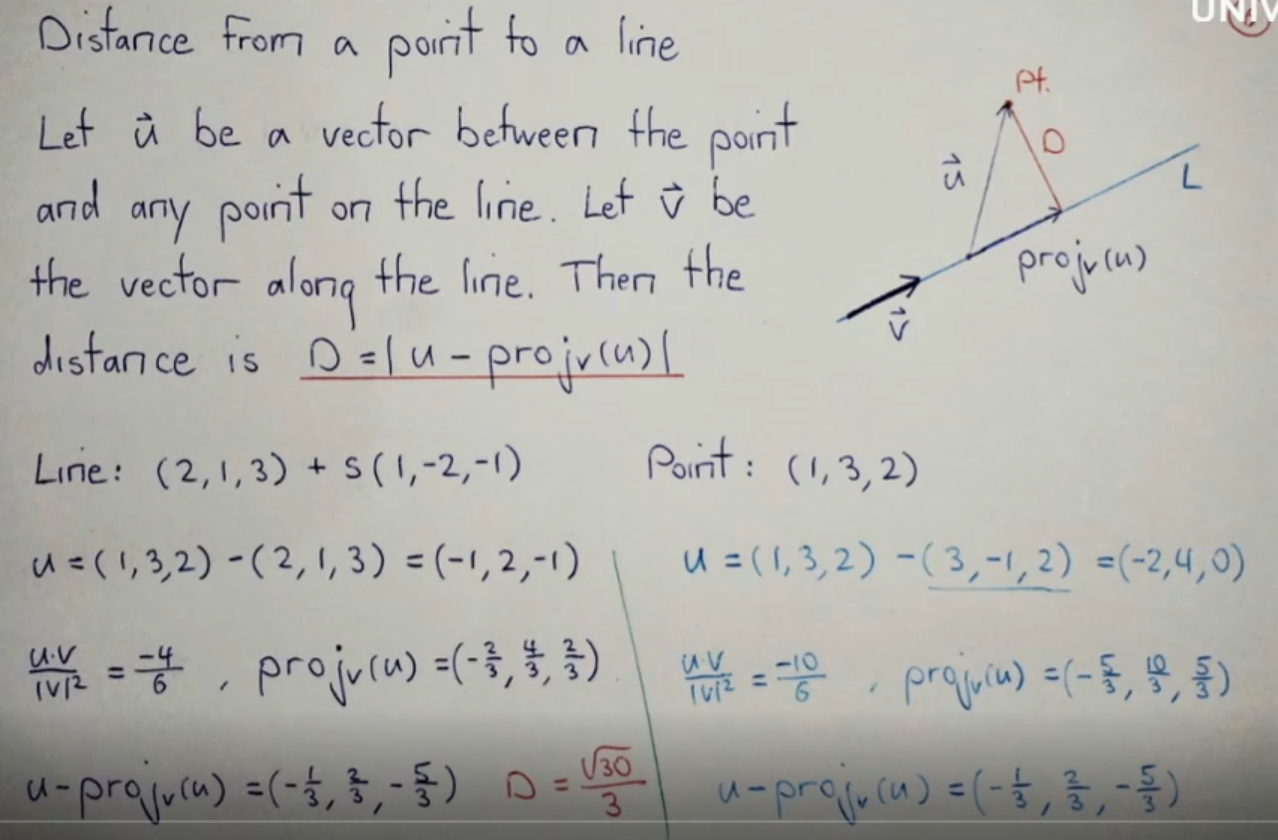 UNIV
Distance from a point to a line
Pt.
Let u⃗ be a vector between the point
D
u⃗
L
and any point on the line. Let v⃗ be
projᵥ(u)
the vector along the line. Then the
v⃗
distance is D = | u - projᵥ(u) |
Line: (2,1,3) + s(1,-2,-1) Point: (1,3,2)
u = (1,3,2) - (2,1,3) = (-1,2,-1)
u·v/|v|² = -4/6 , projᵥ(u) = (-2/3, 4/3, 2/3)
u - projᵥ(u) = (-1/3, 2/3, -5/3) D = √30/3
u = (1,3,2) - (3,-1,2) = (-2,4,0)
u·v/|v|² = -10/6 , projᵥ(u) = (-5/3, 10/3, 5/3)
u - projᵥ(u) = (-1/3, 2/3, -5/3)